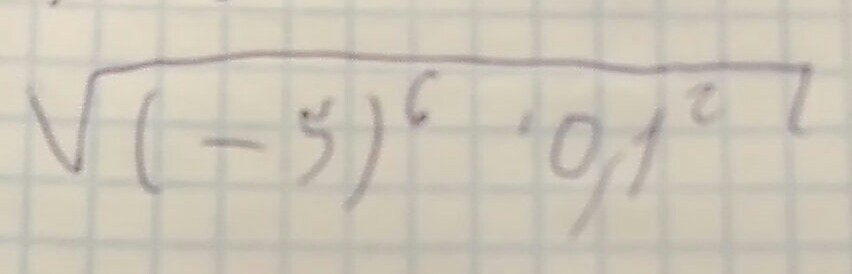 √((-5)⁶ · 0,1²)